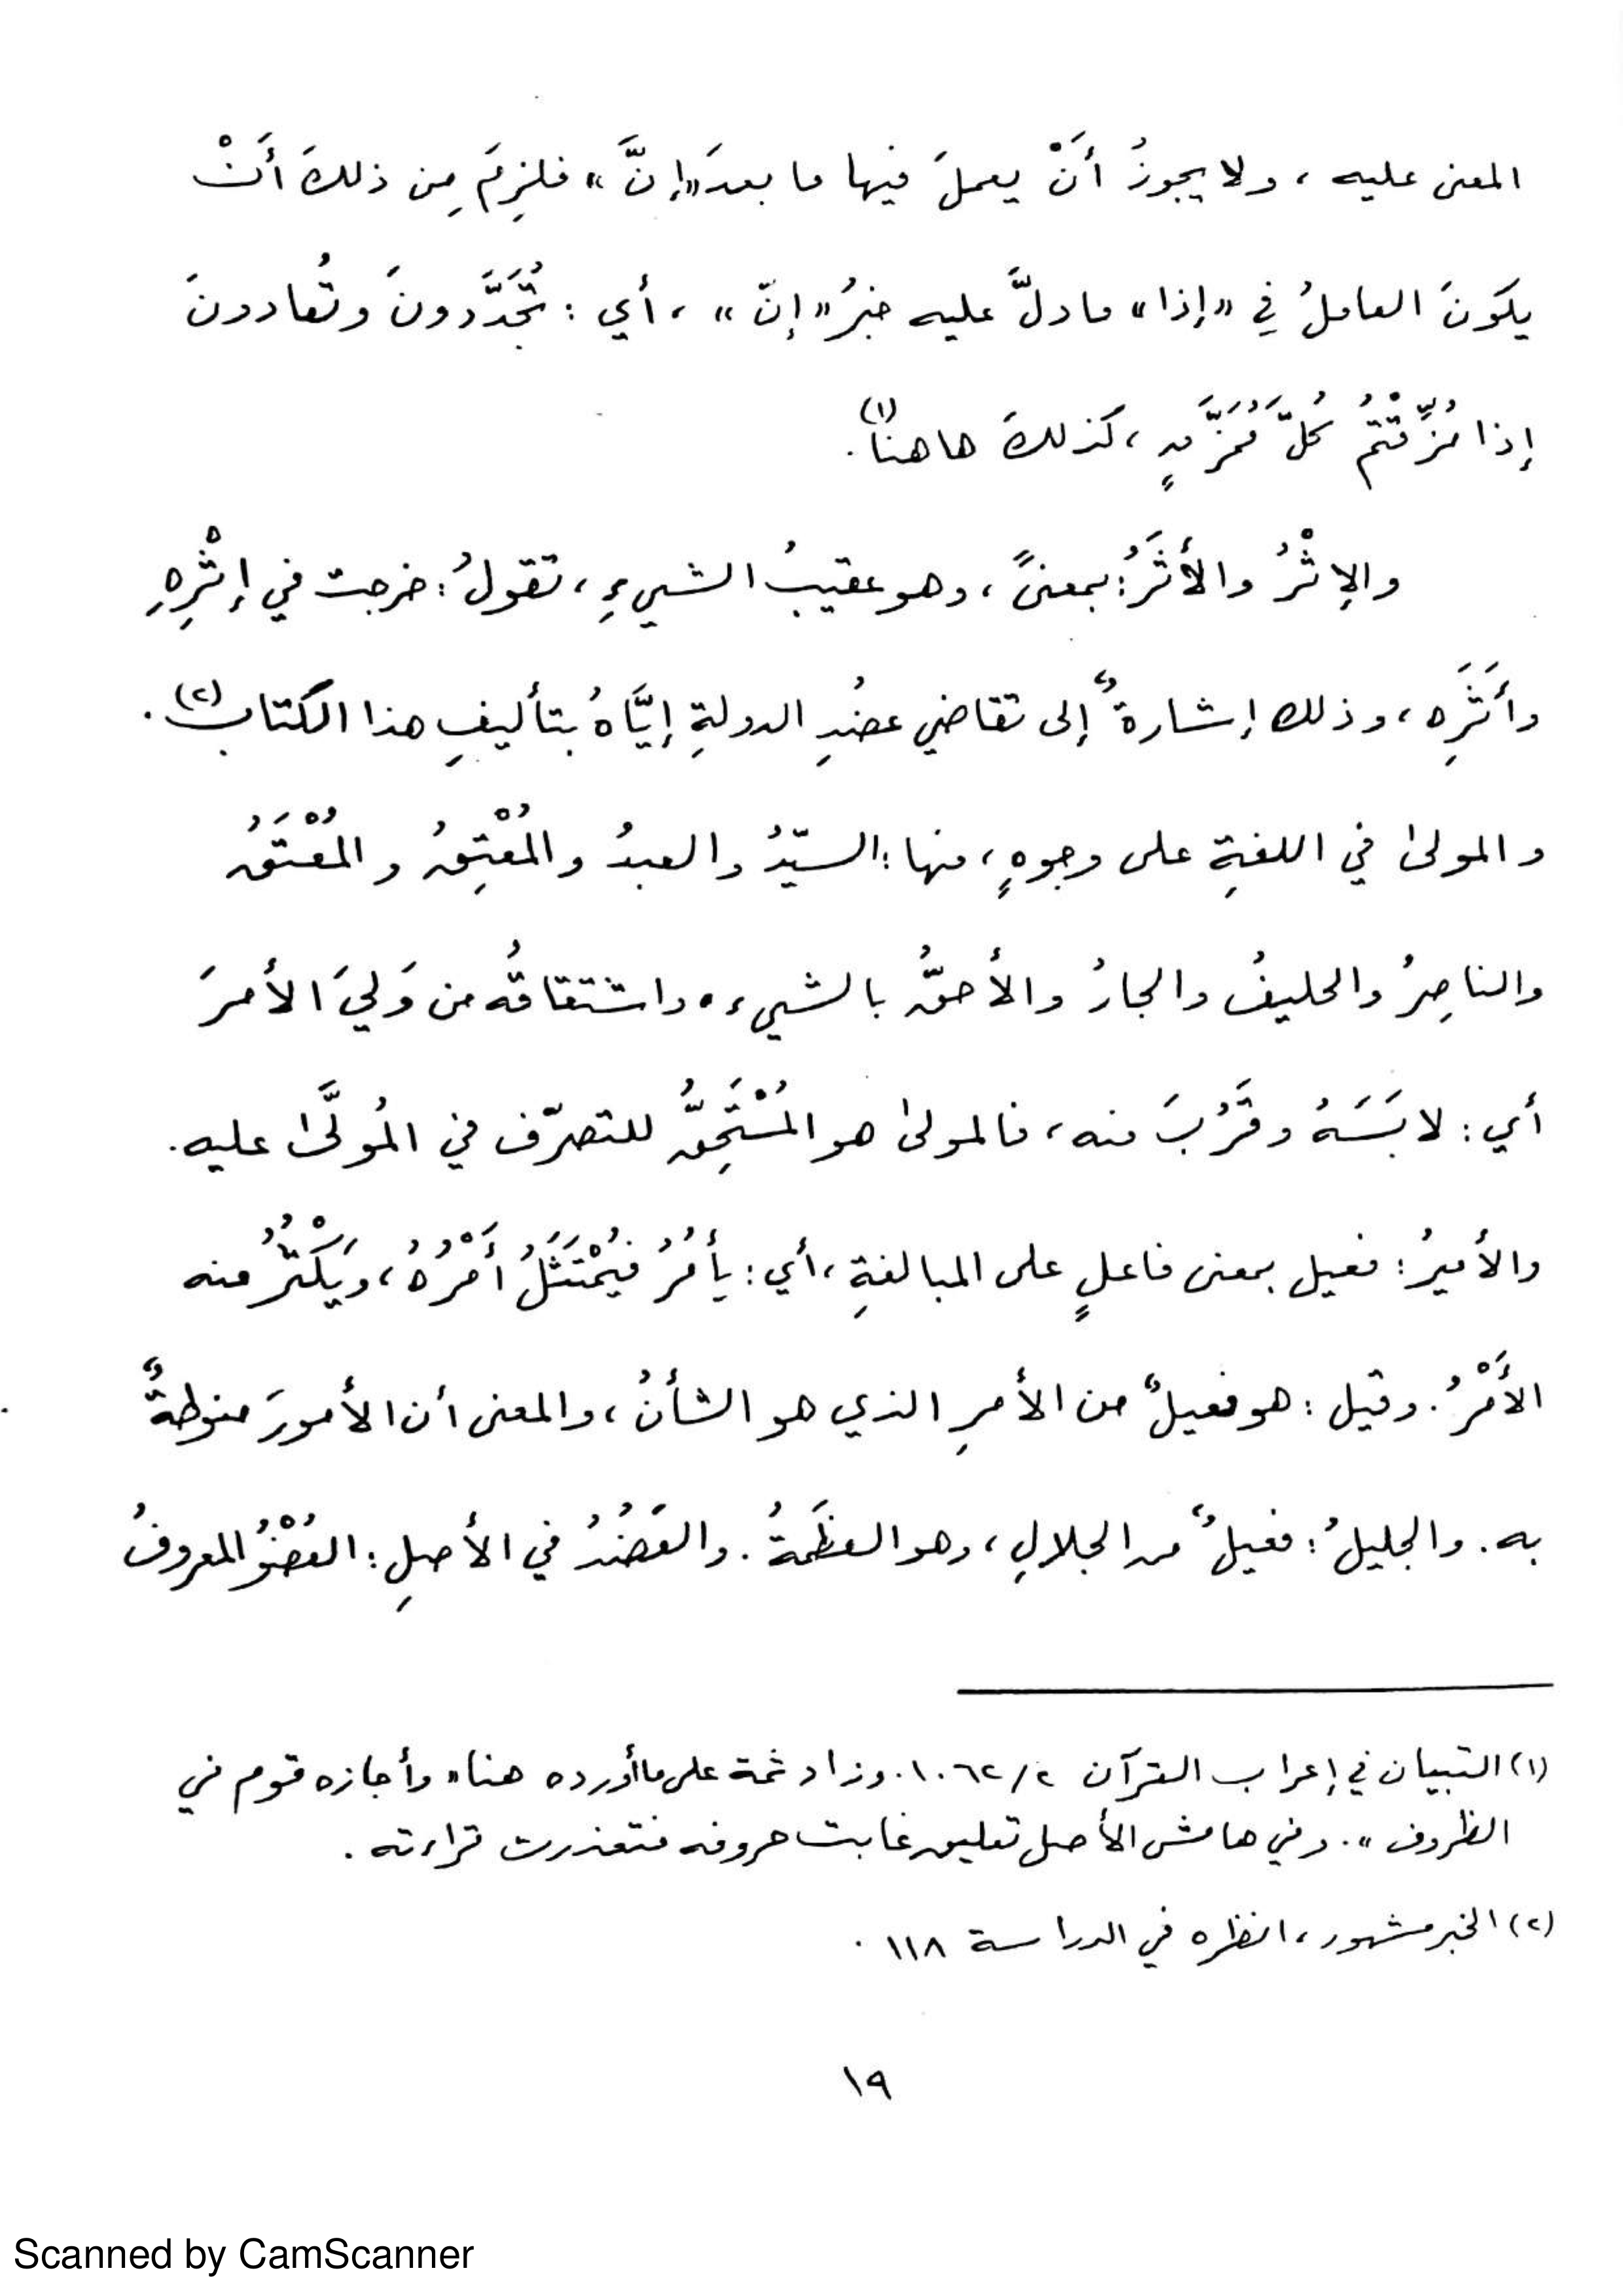 المعنى عليه ، ولا يجوزُ أَنْ يعملَ فيها ما بعدَ «إنَّ» فلزِمَ مِن ذلكَ أَنْ
يكونَ العاملُ في «إذا» ما دلَّ عليه خبرُ «إنّ» ، أي : تُجَدَّدونَ وتُعادونَ
إذا مُزِّقْتُمْ كُلَّ مُمَزَّقٍ ، كذلكَ هاهنا(١) .
والإثْرُ والأَثَرُ : بمعنىً ، وهو عقيبُ الشيءِ ، تقولُ : خرجت في إثْرِهِ
وأَثَرِه ، وذلك إشارةٌ إلى تقاضي عضُدِ الدولةِ إيَّاهُ بتأليفِ هذا الكتاب(٢) .
والمولىٰ في اللغةِ على وجوهٍ ، منها : السيّدُ والعبدُ والمُعْتِقُ والمُعْتَقُ
والناصِرُ والحليفُ والجارُ والأحقُّ بالشيء . واشتقاقُه من وَلِيَ الأمرَ
أي : لابَسَهُ وقَرُبَ منه ، فالمولىٰ هو المُسْتَحِقُّ للتصرّف في المُولَّىٰ عليه .
والأميرُ : فعيل بمعنى فاعلٍ على المبالغةِ ، أي : يأمُرُ فيُمْتَثَلُ أَمْرُهُ ، ويَكْثُرُ منه
الأَمْرُ . وقيل : هو فعيلٌ من الأمرِ الذي هو الشأنُ ، والمعنى أن الأمورَ منوطةٌ
به . والجليلُ : فعيلٌ من الجلالِ ، وهو العظَمةُ . والعَضُدُ في الأصلِ : العُضْوُ المعروفُ
(١) التبيان في إعراب القرآن ٢/ ١٠٦٢ . وزاد ثمة على ما أورده هنا « وأجازه قوم في
الظروف » . وفي هامش الأصل تعليق غابت حروفه فتعذرت قراءته .
(٢) الخبر مشهور ، انظره في الدراسة ١١٨ .
١٩
Scanned by CamScanner